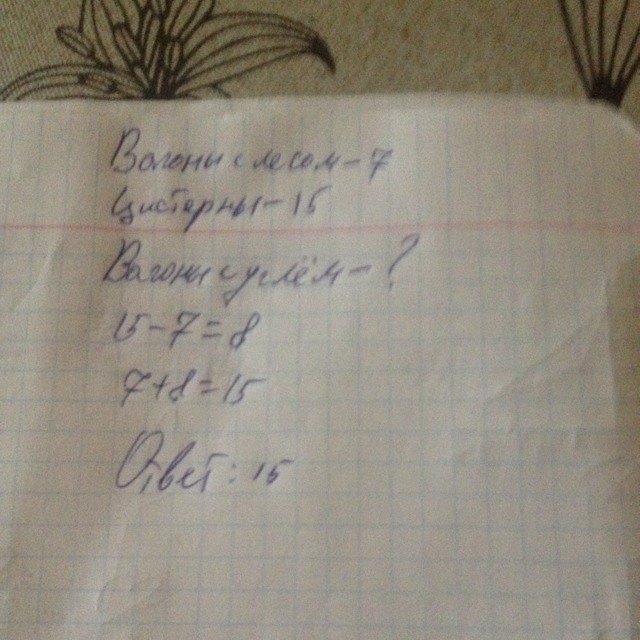 Вагоны с лесом – 7
Цистерны – 15
Вагоны с углём – ?
15 – 7 = 8
7 + 8 = 15
Ответ: 15